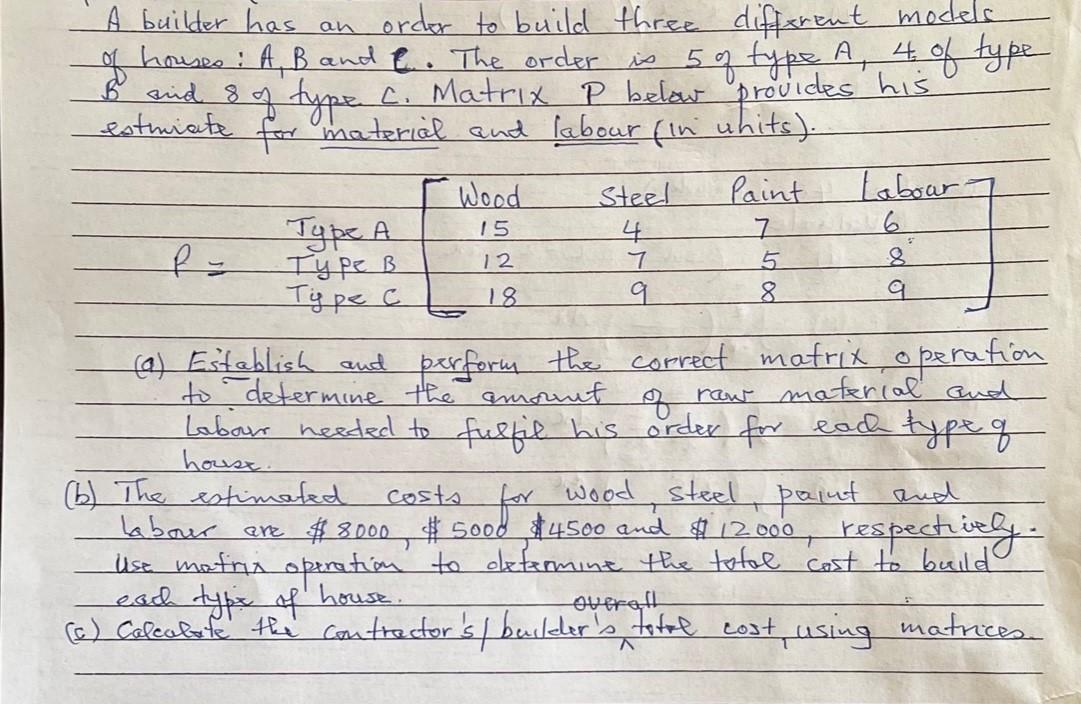 A builder has an order to build three different models
of houses: A, B and C. The order is 5 of type A, 4 of type
B and 8 of type C. Matrix P below provides his
estmiate for material and labour (in units).
Wood Steel Paint Labour
Type A 15 4 7 6
P = Type B 12 7 5 8
Type C 18 9 8 9
(a) Establish and perform the correct matrix operation
to determine the amount of raw material and
Labour needed to fulfil his order for each type of
house.
(b) The estimated costs for wood, steel, paint and
labour are $8000, $5000, $4500 and $12000, respectively.
Use matrix operation to determine the total cost to build
each type of house.
(c) Calculate the contractor's/builder's overall total cost, using matrices.